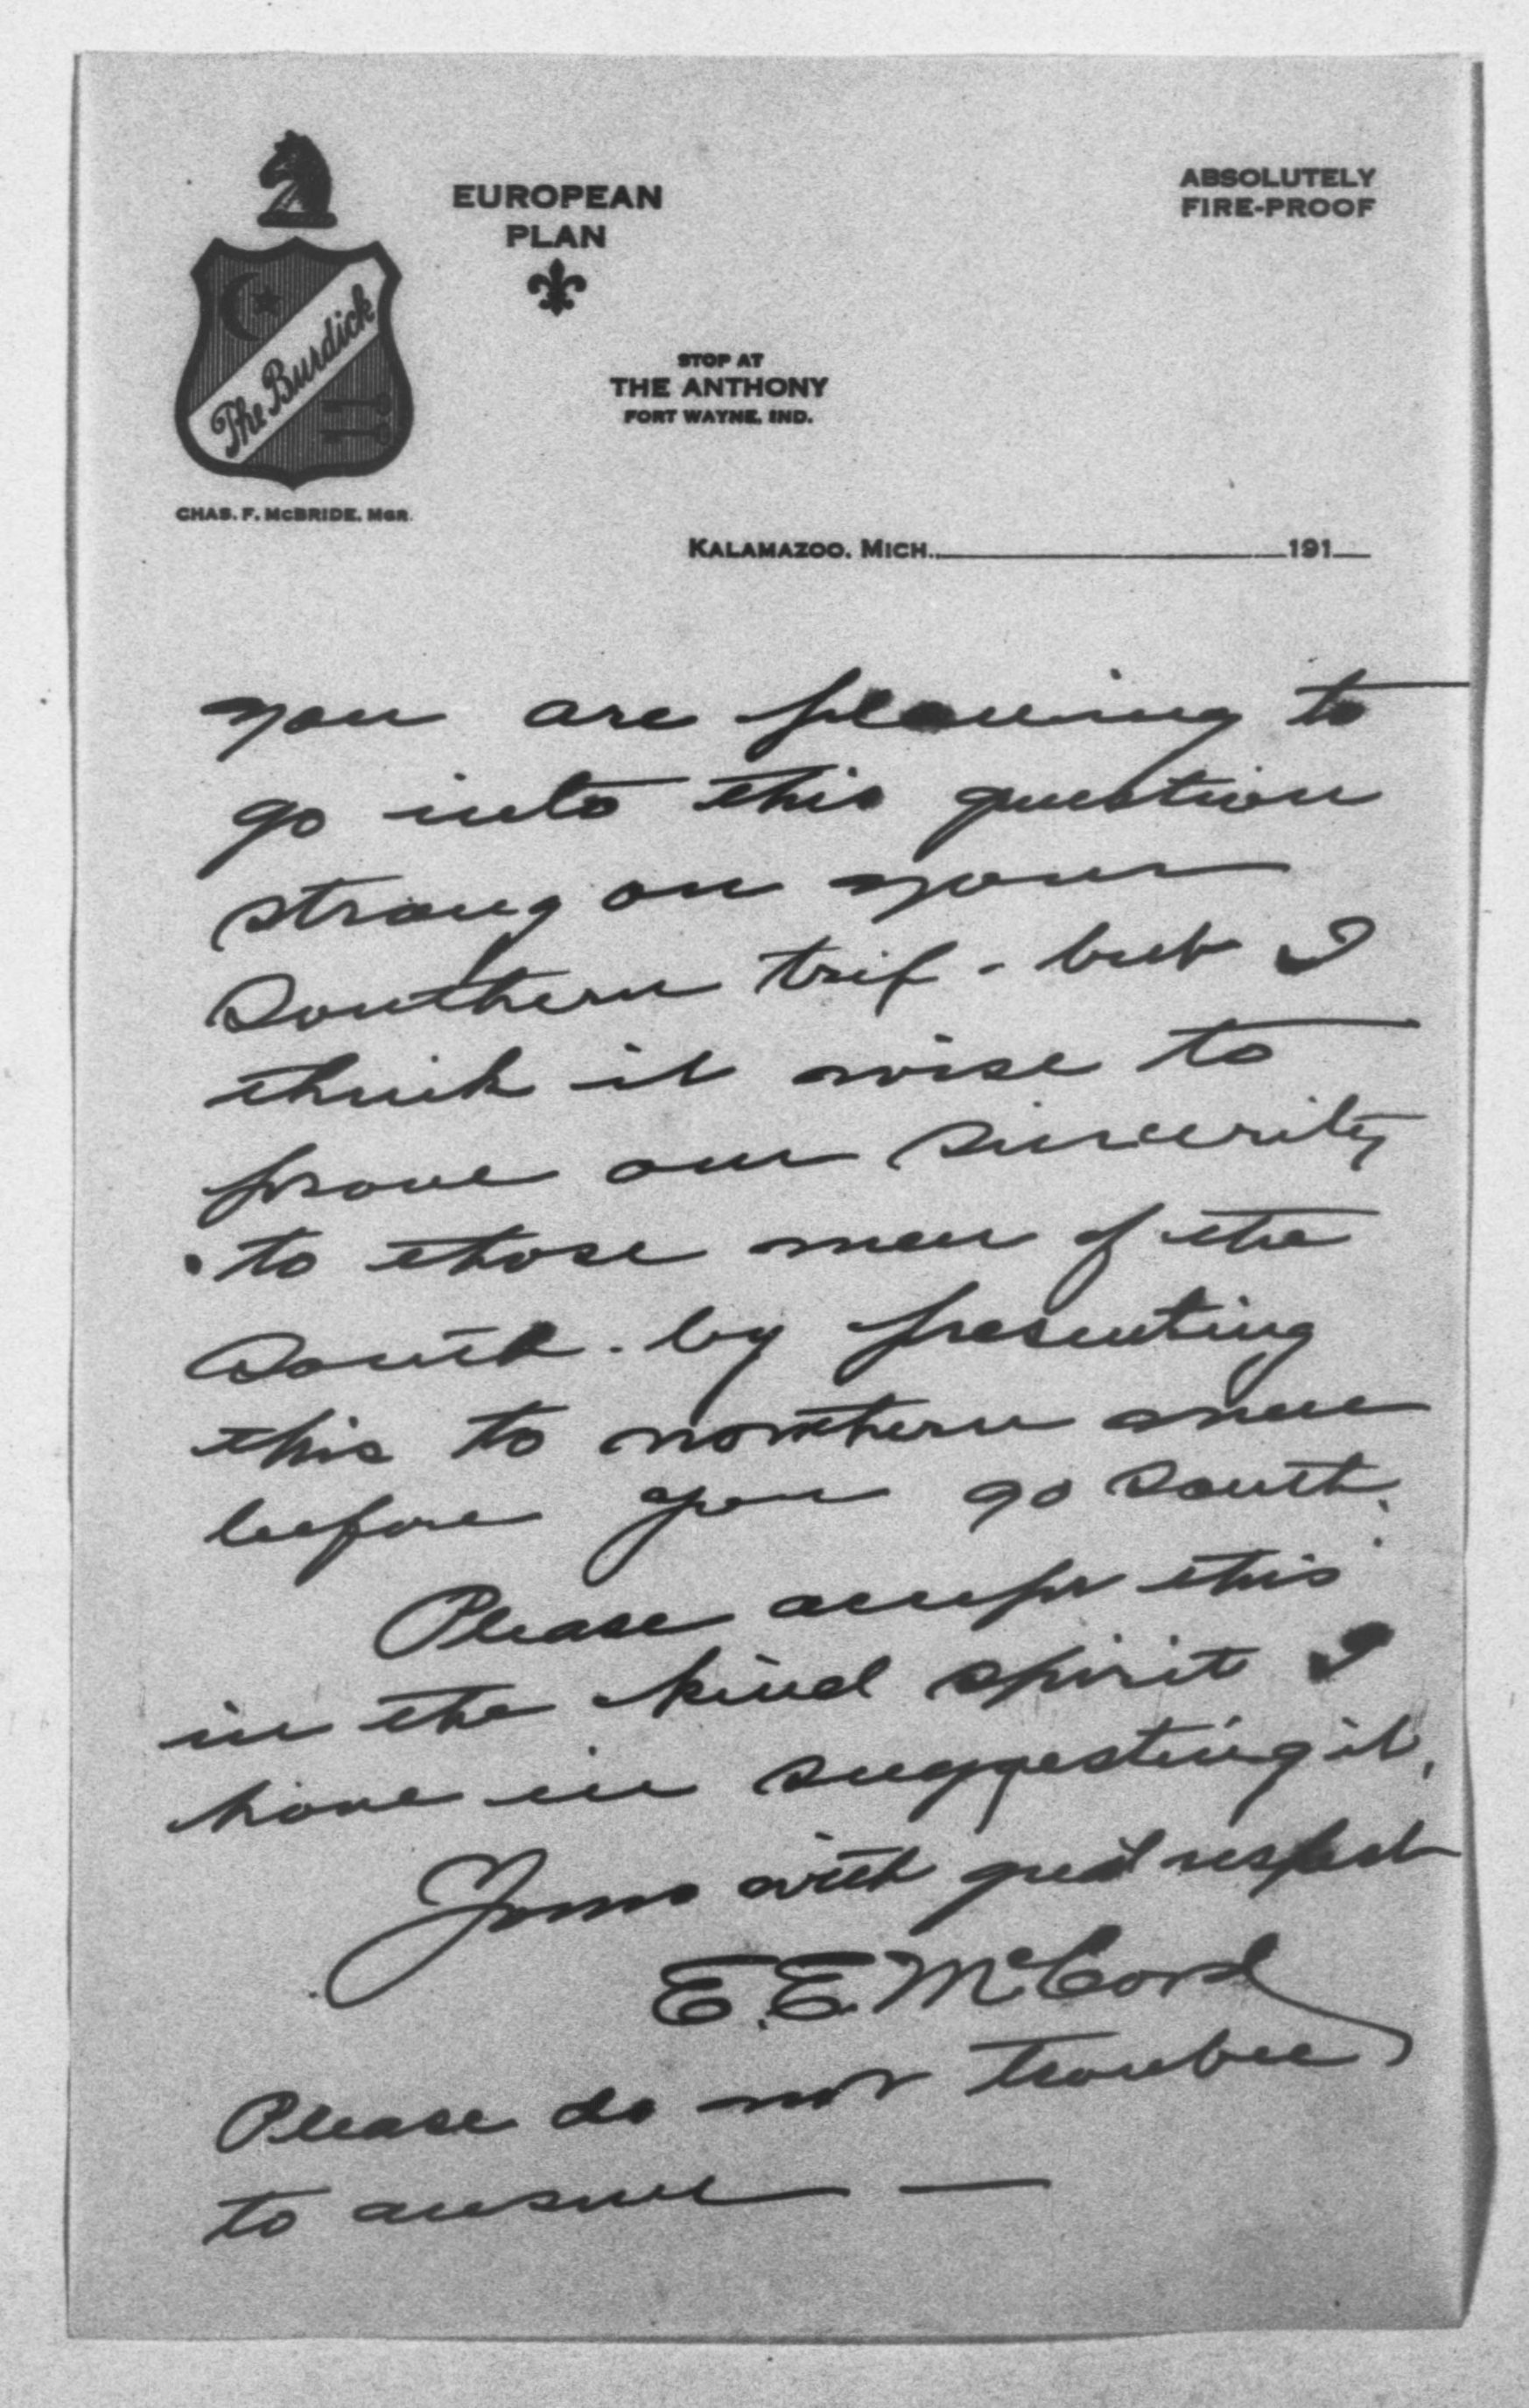 EUROPEAN
PLAN
ABSOLUTELY
FIRE-PROOF
The Burdick
STOP AT
THE ANTHONY
FORT WAYNE, IND.
CHAS. F. McBRIDE, MGR.
KALAMAZOO, MICH. 191
you are planning to
go into this question
strong on your
Southern trip - but I
think it wise to
prove our sincerity
to those men of the
South - by presenting
this to northern men
before you go South.
Please accept this
in the kind spirit I
have in suggesting it,
Yours with great respect
E. E. McCord
Please do not trouble
to answer —